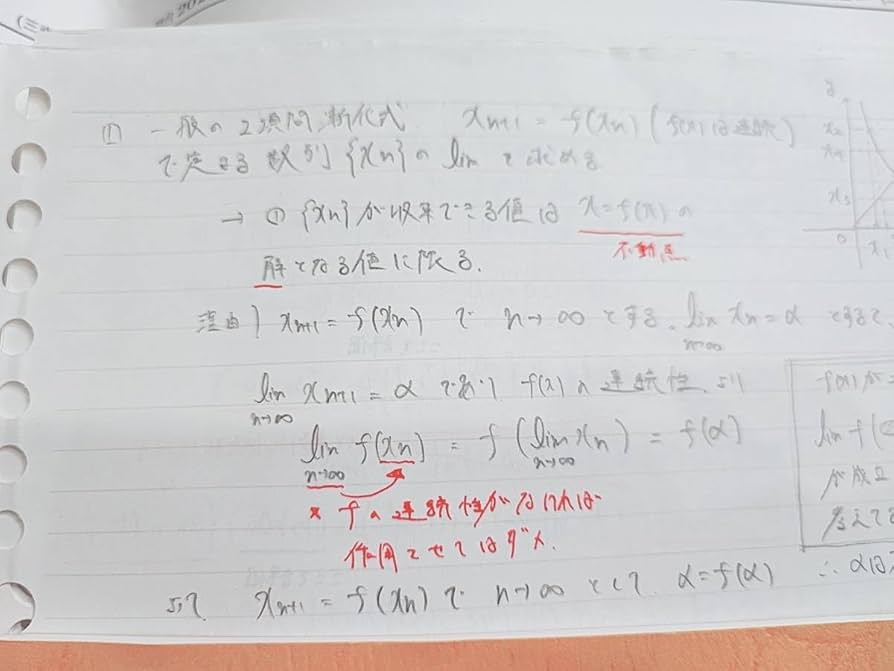 ① 一般の2項間漸化式 xn+1 = f(xn) (f(x)は連続)
で定まる数列{xn}のlimを求める
→ ① {xn}が収束できる値は x=f(x)の
不動点
解となる値に限る.
理由) xn+1 = f(xn) で n→∞ とする. lim n→∞ xn = α とすると
lim n→∞ xn+1 = α であり f(x)の連続性より
lim n→∞ f(xn) = f(lim n→∞ xn) = f(α)
※ fの連続性がなければ
作用させてはダメ.
よって xn+1 = f(xn) で n→∞ として α=f(α) ∴ αは
f(x)が
lim f(
が成立
考えて
x1
0